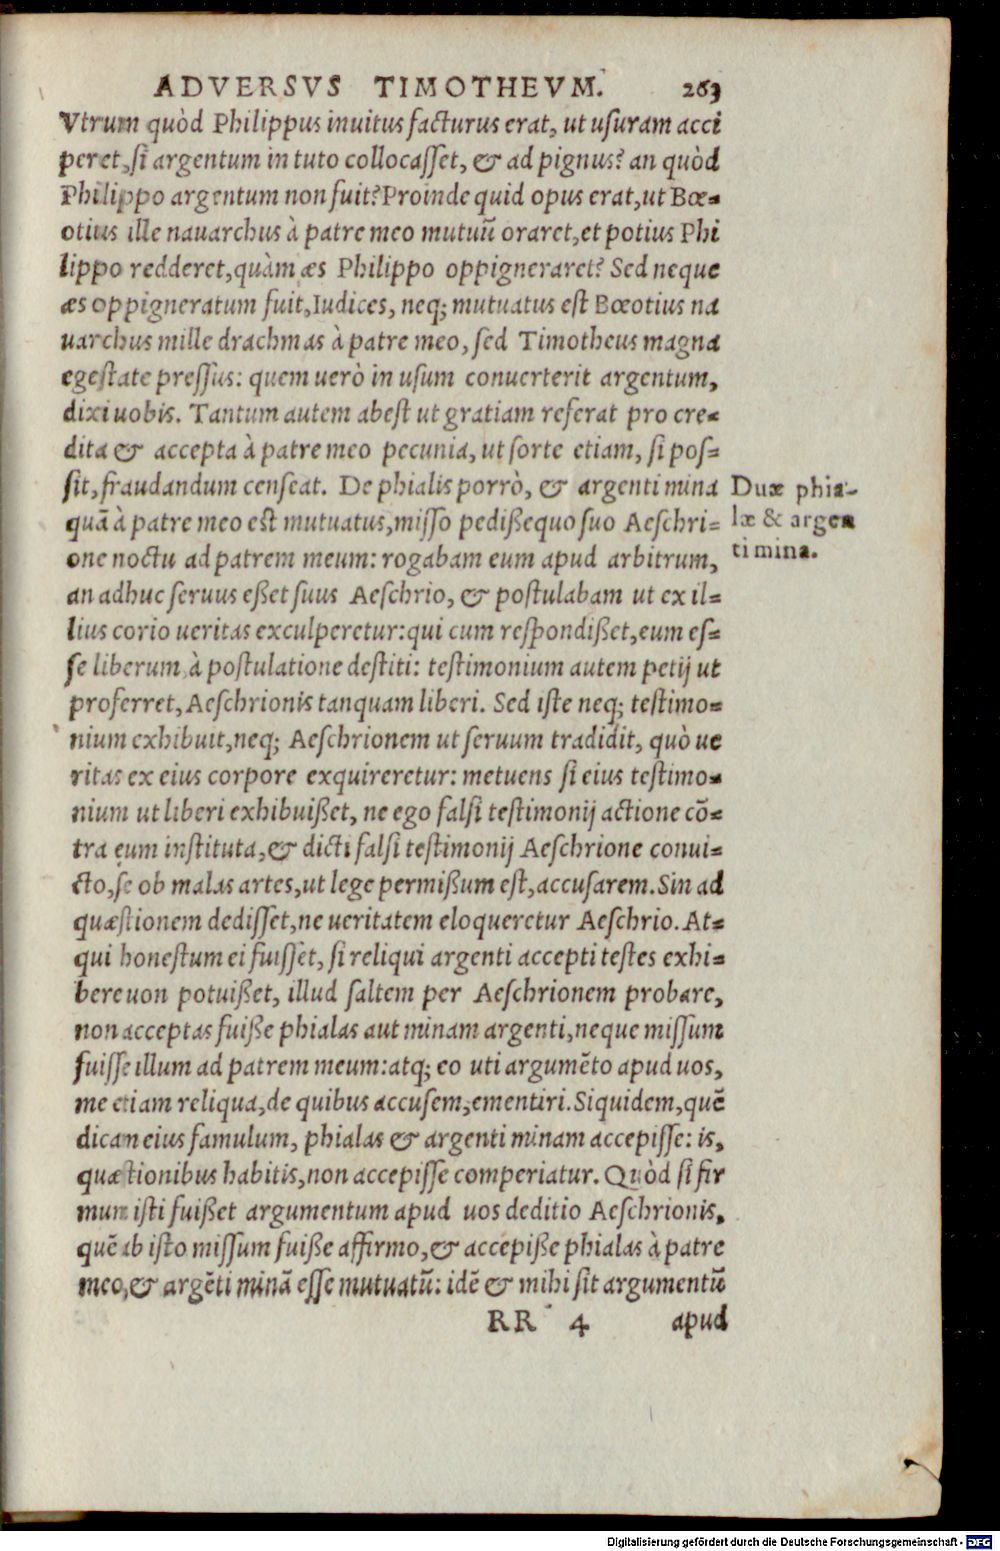 ADVERSVS TIMOTHEVM. 263
Vtrum quòd Philippus inuitus facturus erat, ut usuram acci
peret, si argentum in tuto collocasset, & ad pignus? an quòd
Philippo argentum non fuit? Proinde quid opus erat, ut Bœ-
otius ille nauarchus à patre meo mutuū oraret, et potius Phi
lippo redderet, quàm æs Philippo oppigneraret? Sed neque
æs oppigneratum fuit, Iudices, neq; mutuatus est Bœotius na
uarchus mille drachmas à patre meo, sed Timotheus magna
egestate pressus: quem uerò in usum conuerterit argentum,
dixi uobis. Tantum autem abest ut gratiam referat pro cre-
dita & accepta à patre meo pecunia, ut sorte etiam, si pos-
sit, fraudandum censeat. De phialis porrò, & argenti mina
quā à patre meo est mutuatus, misso pedißequo suo Aeschri-
one noctu ad patrem meum: rogabam eum apud arbitrum,
an adhuc seruus eßet suus Aeschrio, & postulabam ut ex il-
lius corio ueritas exculperetur: qui cum respondißet, eum es-
se liberum, à postulatione destiti: testimonium autem petij ut
proferret, Aeschrionis tanquam liberi. Sed iste neq; testimo-
nium exhibuit, neq; Aeschrionem ut seruum tradidit, quò ue
ritas ex eius corpore exquireretur: metuens si eius testimo-
nium ut liberi exhibuißet, ne ego falsi testimonij actione cō-
tra eum instituta, & dicti falsi testimonij Aeschrione conui-
cto, se ob malas artes, ut lege permißum est, accusarem. Sin ad
quæstionem dedisset, ne ueritatem eloqueretur Aeschrio. At-
qui honestum ei fuisset, si reliqui argenti accepti testes exhi-
bere uon potuißet, illud saltem per Aeschrionem probare,
non acceptas fuiße phialas aut minam argenti, neque missum
fuisse illum ad patrem meum: atq; eo uti argumēto apud uos,
me etiam reliqua, de quibus accusem, ementiri. Siquidem, quē
dicam eius famulum, phialas & argenti minam accepisse: is,
quæstionibus habitis, non accepisse comperiatur. Quòd si fir
mum isti fuißet argumentum apud uos deditio Aeschrionis,
quē ab isto missum fuiße affirmo, & accepiße phialas à patre
meo, & argēti minā esse mutuatū: idē & mihi sit argumentū
RR 4 apud
Duæ phia-
læ & argen
ti mina.
Digitalisierung gefördert durch die Deutsche Forschungsgemeinschaft - DFG